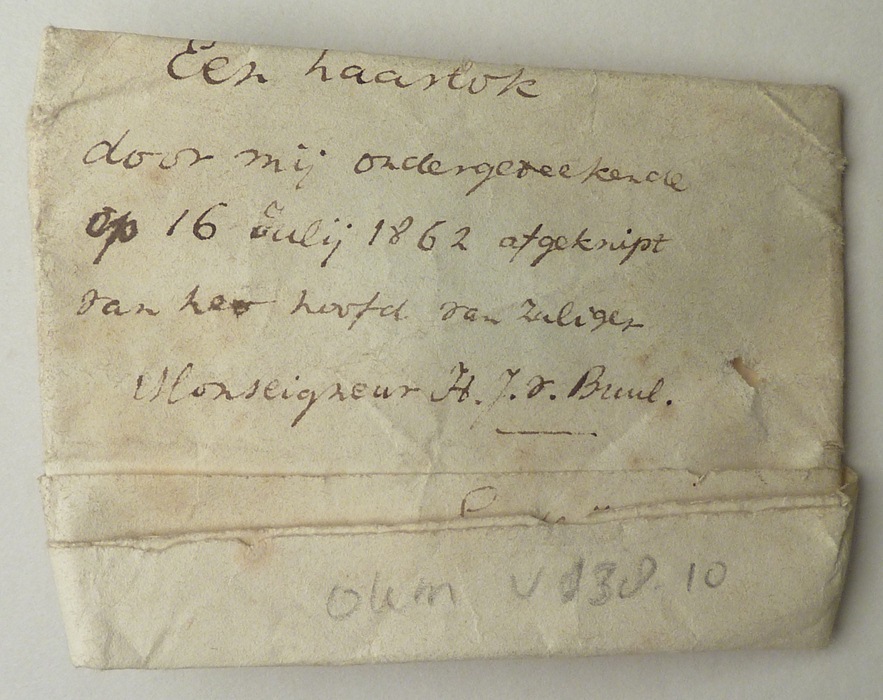 Een haarlok
door mij ondergeteekende
op 16 Julij 1862 afgeknipt
van het hoofd van zaliger
Monseigneur H. J. v. Buul.
OKM V
10